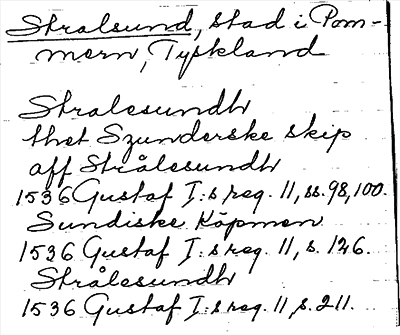 Stralsund, stad i Pom-
mern, Tyskland
Stralesundh
thet Szunderske skip
aff Strålesundh
1536 Gustaf I:s reg. 11, ss. 98, 100.
Sundiske Köpmen
1536 Gustaf I:s reg. 11, s. 126.
Strålesundh
1536 Gustaf I:s reg. 11, s. 211.